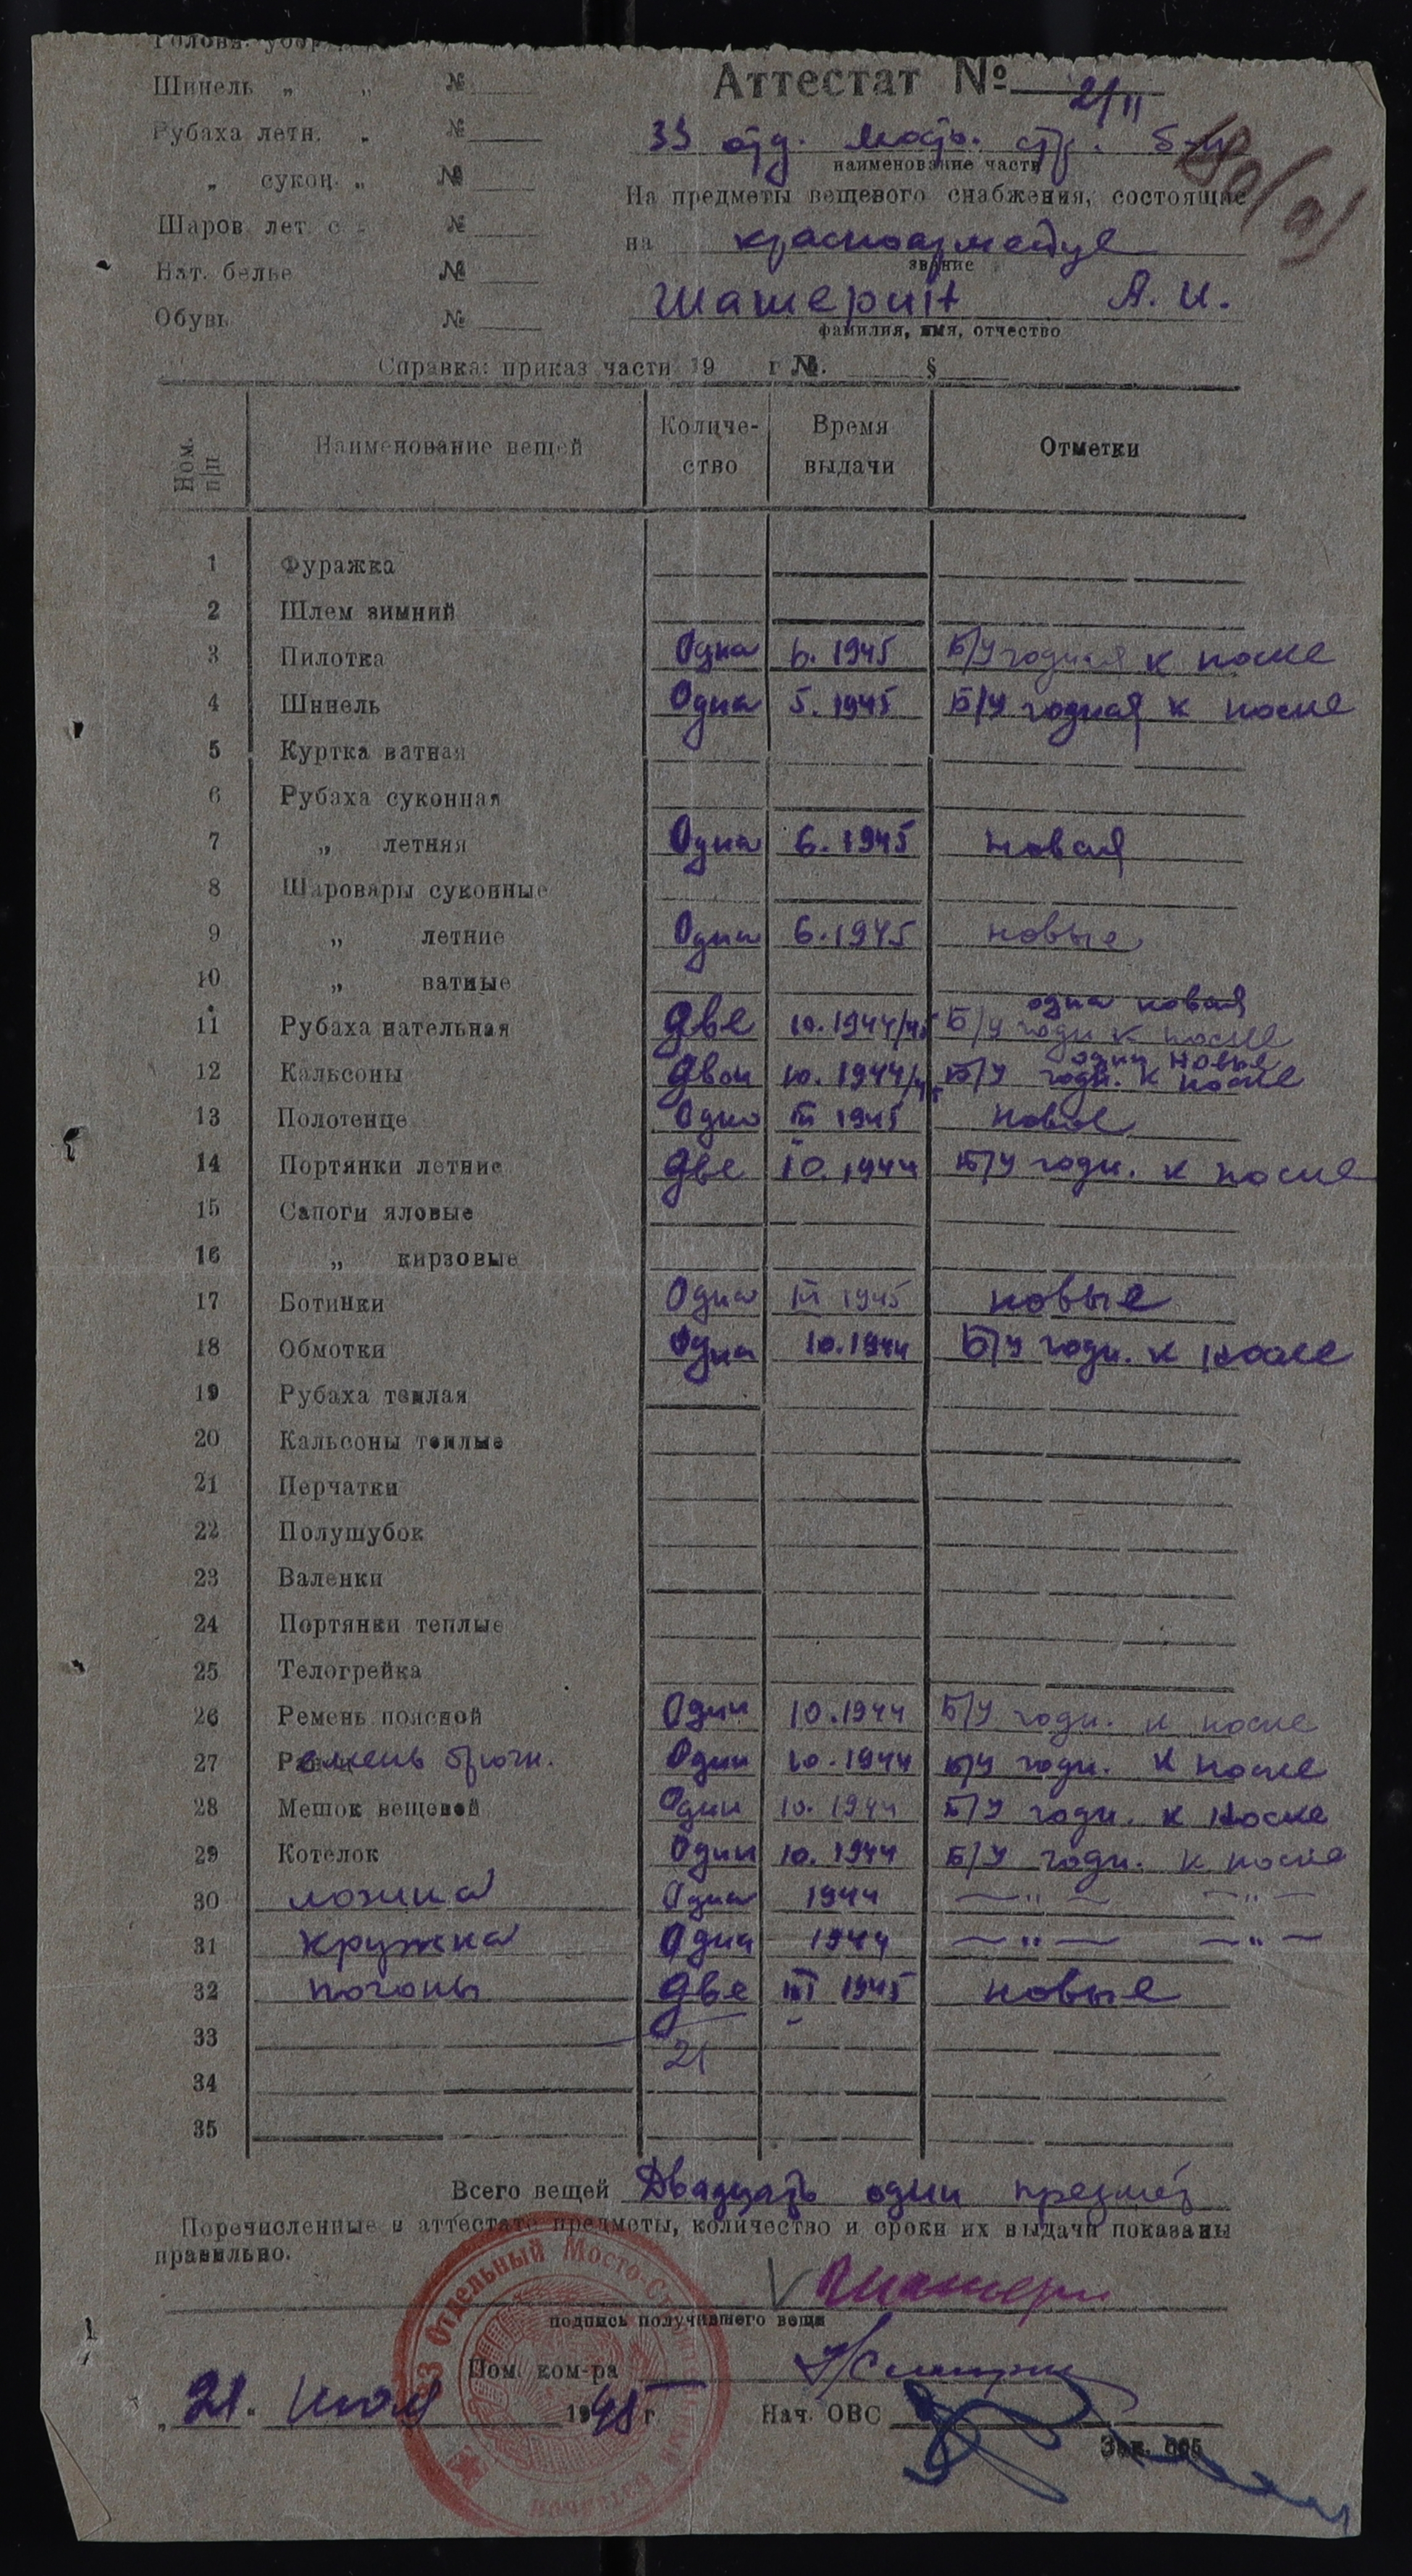 Головн. убор
Шинель „ „ №
Рубаха летн. „ №
„ сукон. „ №
Шаров. лет. с „ №
Нат. белье №
Обувь №
Аттестат № 2/11
33 отд. мосто. стр. б-н
наименование части
На предметы вещевого снабжения, состоящие
на красноармейце
звание
Шашерин А. И.
фамилия, имя, отчество
Справка: приказ части 19 г №. §
Ном. п/п Наименование вещей Количе-ство Время выдачи Отметки
1 Фуражка
2 Шлем зимний
3 Пилотка Одна 6. 1945 Б/У годная к носке
4 Шинель Одна 5. 1945 Б/У годная к носке
5 Куртка ватная
6 Рубаха суконная
7 „ летняя Одна 6. 1945 новая
8 Шаровары суконные
9 „ летние Одни 6. 1945 новые
10 „ ватные
одна новая
11 Рубаха нательная Две 10. 1944/45 Б/У годн к носке
одни новые
12 Кальсоны Двои 10. 1944/45 Б/У годн. к носке
13 Полотенце Одно III 1945 новое
14 Портянки летние Две 10. 1944 Б/У годн. к носке
15 Сапоги яловые
16 „ кирзовые
17 Ботинки Одна III 1945 новые
18 Обмотки Одна 10. 1944 Б/У годн. к носке
19 Рубаха теплая
20 Кальсоны теплые
21 Перчатки
22 Полушубок
23 Валенки
24 Портянки теплые
25 Телогрейка
26 Ремень поясной Один 10. 1944 Б/У годн. к носке
27 Ремень брючн. Один 10. 1944 Б/У годн. к носке
28 Мешок вещевой Один 10. 1944 Б/У годн. к носке
29 Котелок Один 10. 1944 Б/У годн. к носке
30 ложка Одна 1944 — " — — " —
31 кружка Одна 1944 — " — — " —
32 погоны Две III 1945 новые
33
21
34
35
Всего вещей Двадцать один предмет
Перечисленные в аттестате предметы, количество и сроки их выдачи показаны
правильно.
подпись получившего вещи
Пом. ком-ра
„ 21. июля 1945 г. Нач. ОВС
Зак. 665
33 Отдельный Мосто-Строительный батальон